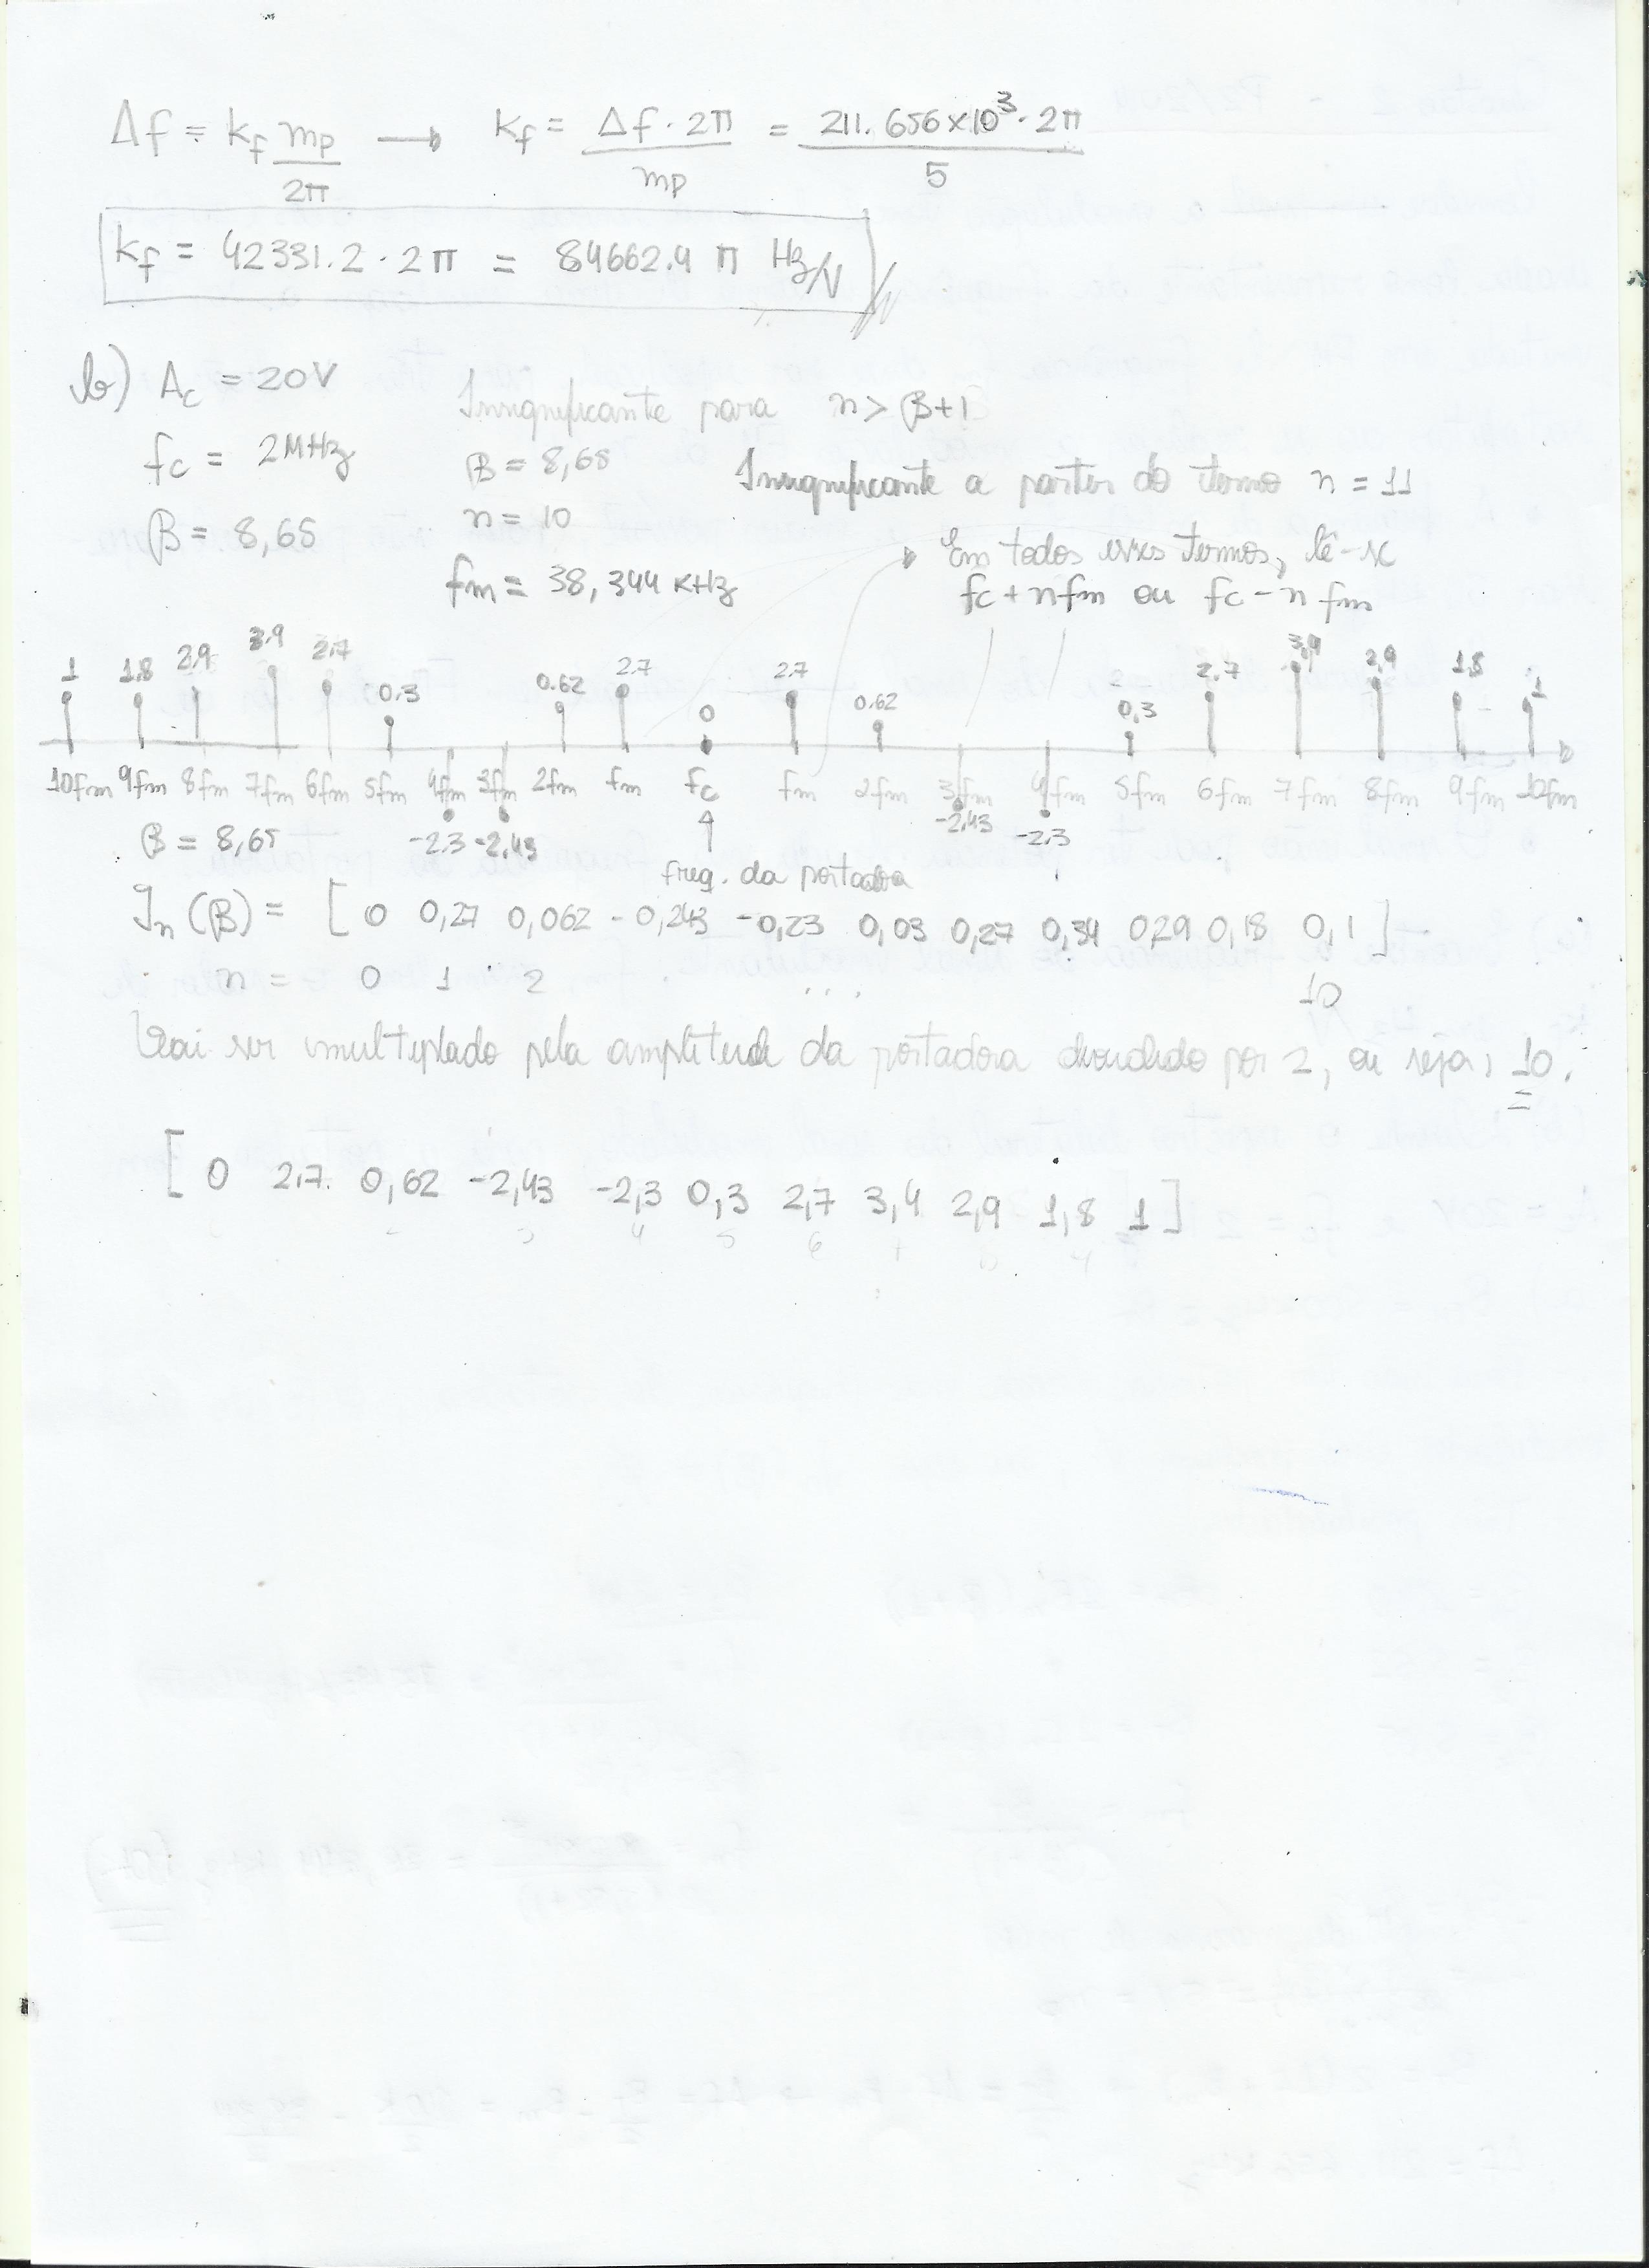 Δf = kf mp/2π → kf = Δf · 2π / mp = 211.656×10³ · 2π / 5
kf = 42331.2 · 2π = 84662.4 π Hz/V
b) Ac = 20V
Insignificante para n > β+1
fc = 2MHz
β = 8,65
Insignificante a partir do termo n = 11
β = 8,65
n = 10
Em todos esses termos, lê-se
fm = 38,344 kHz
fc + n fm ou fc - n fm
1 1.8 2.9 3.9 2.7 0.3 0.62 2.7 0 2.7 0.62 0,3 2.7 3,4 2,9 1.8 1
10fm 9fm 8fm 7fm 6fm 5fm 4fm 3fm 2fm fm fc fm 2fm 3fm 4fm 5fm 6fm 7fm 8fm 9fm 10fm
-2.3 -2,43 -2,43 -2.3
β = 8,65
freq. da portadora
Jn (β) = [ 0 0,27 0,062 -0,243 -0,23 0,03 0,27 0,34 0,29 0,18 0,1 ]
n = 0 1 2 ... 10
Vai ser multiplado pela amplitude da portadora dividido por 2, ou seja, 10.
[ 0 2.7 0,62 -2,43 -2,3 0,3 2,7 3,4 2,9 1,8 1 ]